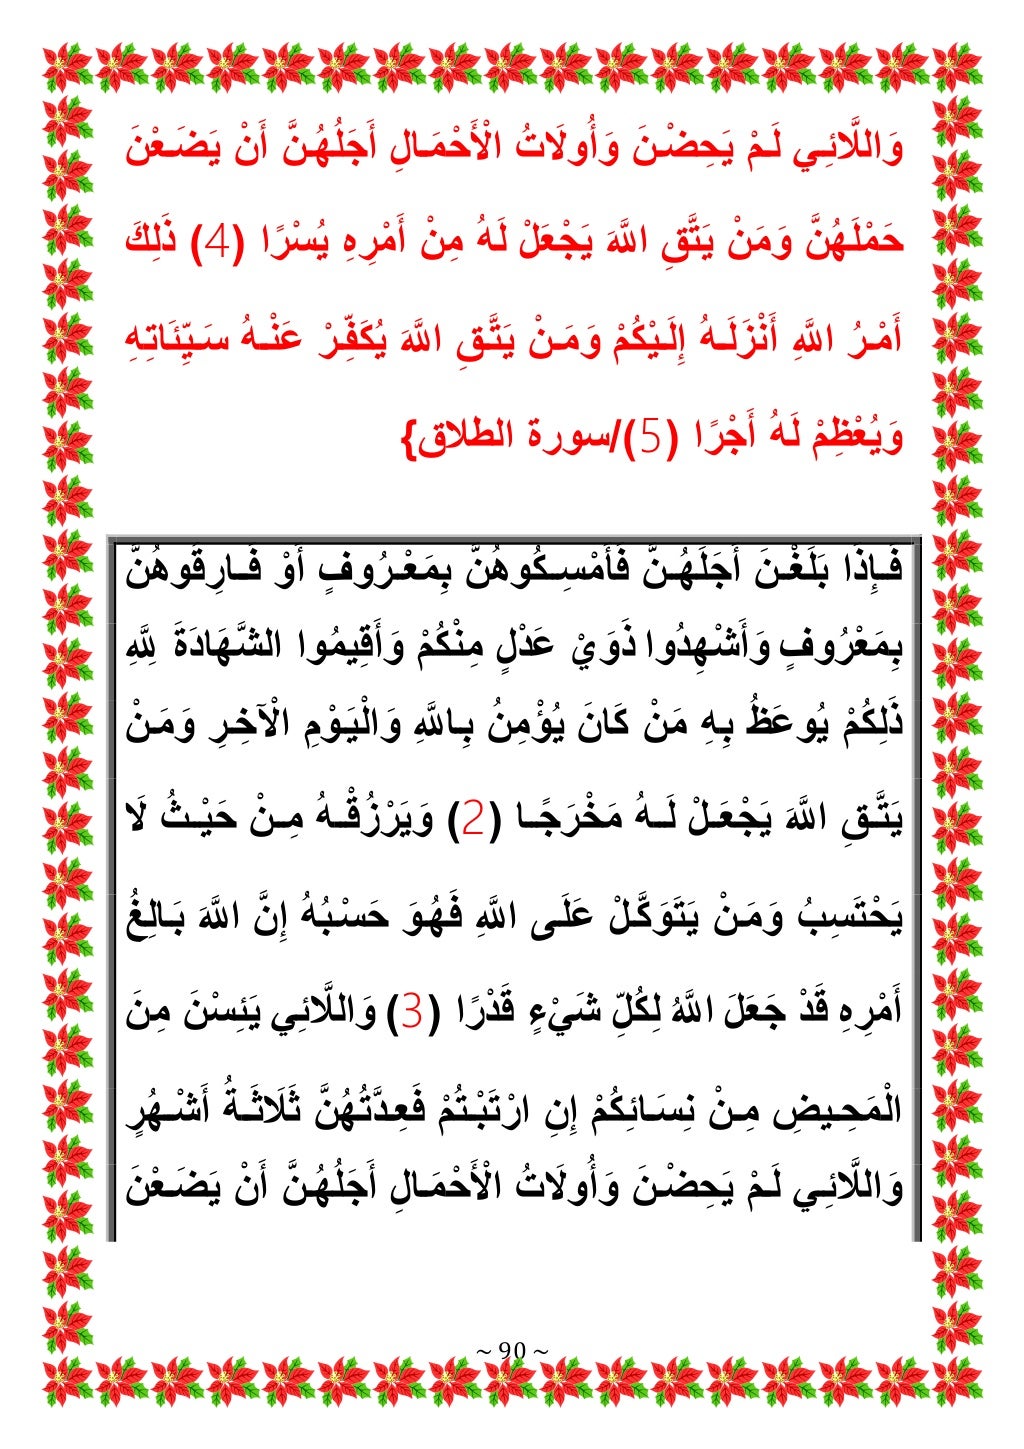 وَاللَّائِي لَمْ يَحِضْنَ وَأُولَاتُ الْأَحْمَالِ أَجَلُهُنَّ أَنْ يَضَعْنَ
حَمْلَهُنَّ وَمَنْ يَتَّقِ اللَّهَ يَجْعَلْ لَهُ مِنْ أَمْرِهِ يُسْرًا (4) ذَلِكَ
أَمْرُ اللَّهِ أَنْزَلَهُ إِلَيْكُمْ وَمَنْ يَتَّقِ اللَّهَ يُكَفِّرْ عَنْهُ سَيِّئَاتِهِ
وَيُعْظِمْ لَهُ أَجْرًا (5)/سورة الطلاق}
فَإِذَا بَلَغْنَ أَجَلَهُنَّ فَأَمْسِكُوهُنَّ بِمَعْرُوفٍ أَوْ فَارِقُوهُنَّ
بِمَعْرُوفٍ وَأَشْهِدُوا ذَوَيْ عَدْلٍ مِنْكُمْ وَأَقِيمُوا الشَّهَادَةَ لِلَّهِ
ذَلِكُمْ يُوعَظُ بِهِ مَنْ كَانَ يُؤْمِنُ بِاللَّهِ وَالْيَوْمِ الْآخِرِ وَمَنْ
يَتَّقِ اللَّهَ يَجْعَلْ لَهُ مَخْرَجًا (2) وَيَرْزُقْهُ مِنْ حَيْثُ لَا
يَحْتَسِبُ وَمَنْ يَتَوَكَّلْ عَلَى اللَّهِ فَهُوَ حَسْبُهُ إِنَّ اللَّهَ بَالِغُ
أَمْرِهِ قَدْ جَعَلَ اللَّهُ لِكُلِّ شَيْءٍ قَدْرًا (3) وَاللَّائِي يَئِسْنَ مِنَ
الْمَحِيضِ مِنْ نِسَائِكُمْ إِنِ ارْتَبْتُمْ فَعِدَّتُهُنَّ ثَلَاثَةُ أَشْهُرٍ
وَاللَّائِي لَمْ يَحِضْنَ وَأُولَاتُ الْأَحْمَالِ أَجَلُهُنَّ أَنْ يَضَعْنَ
~ 90 ~